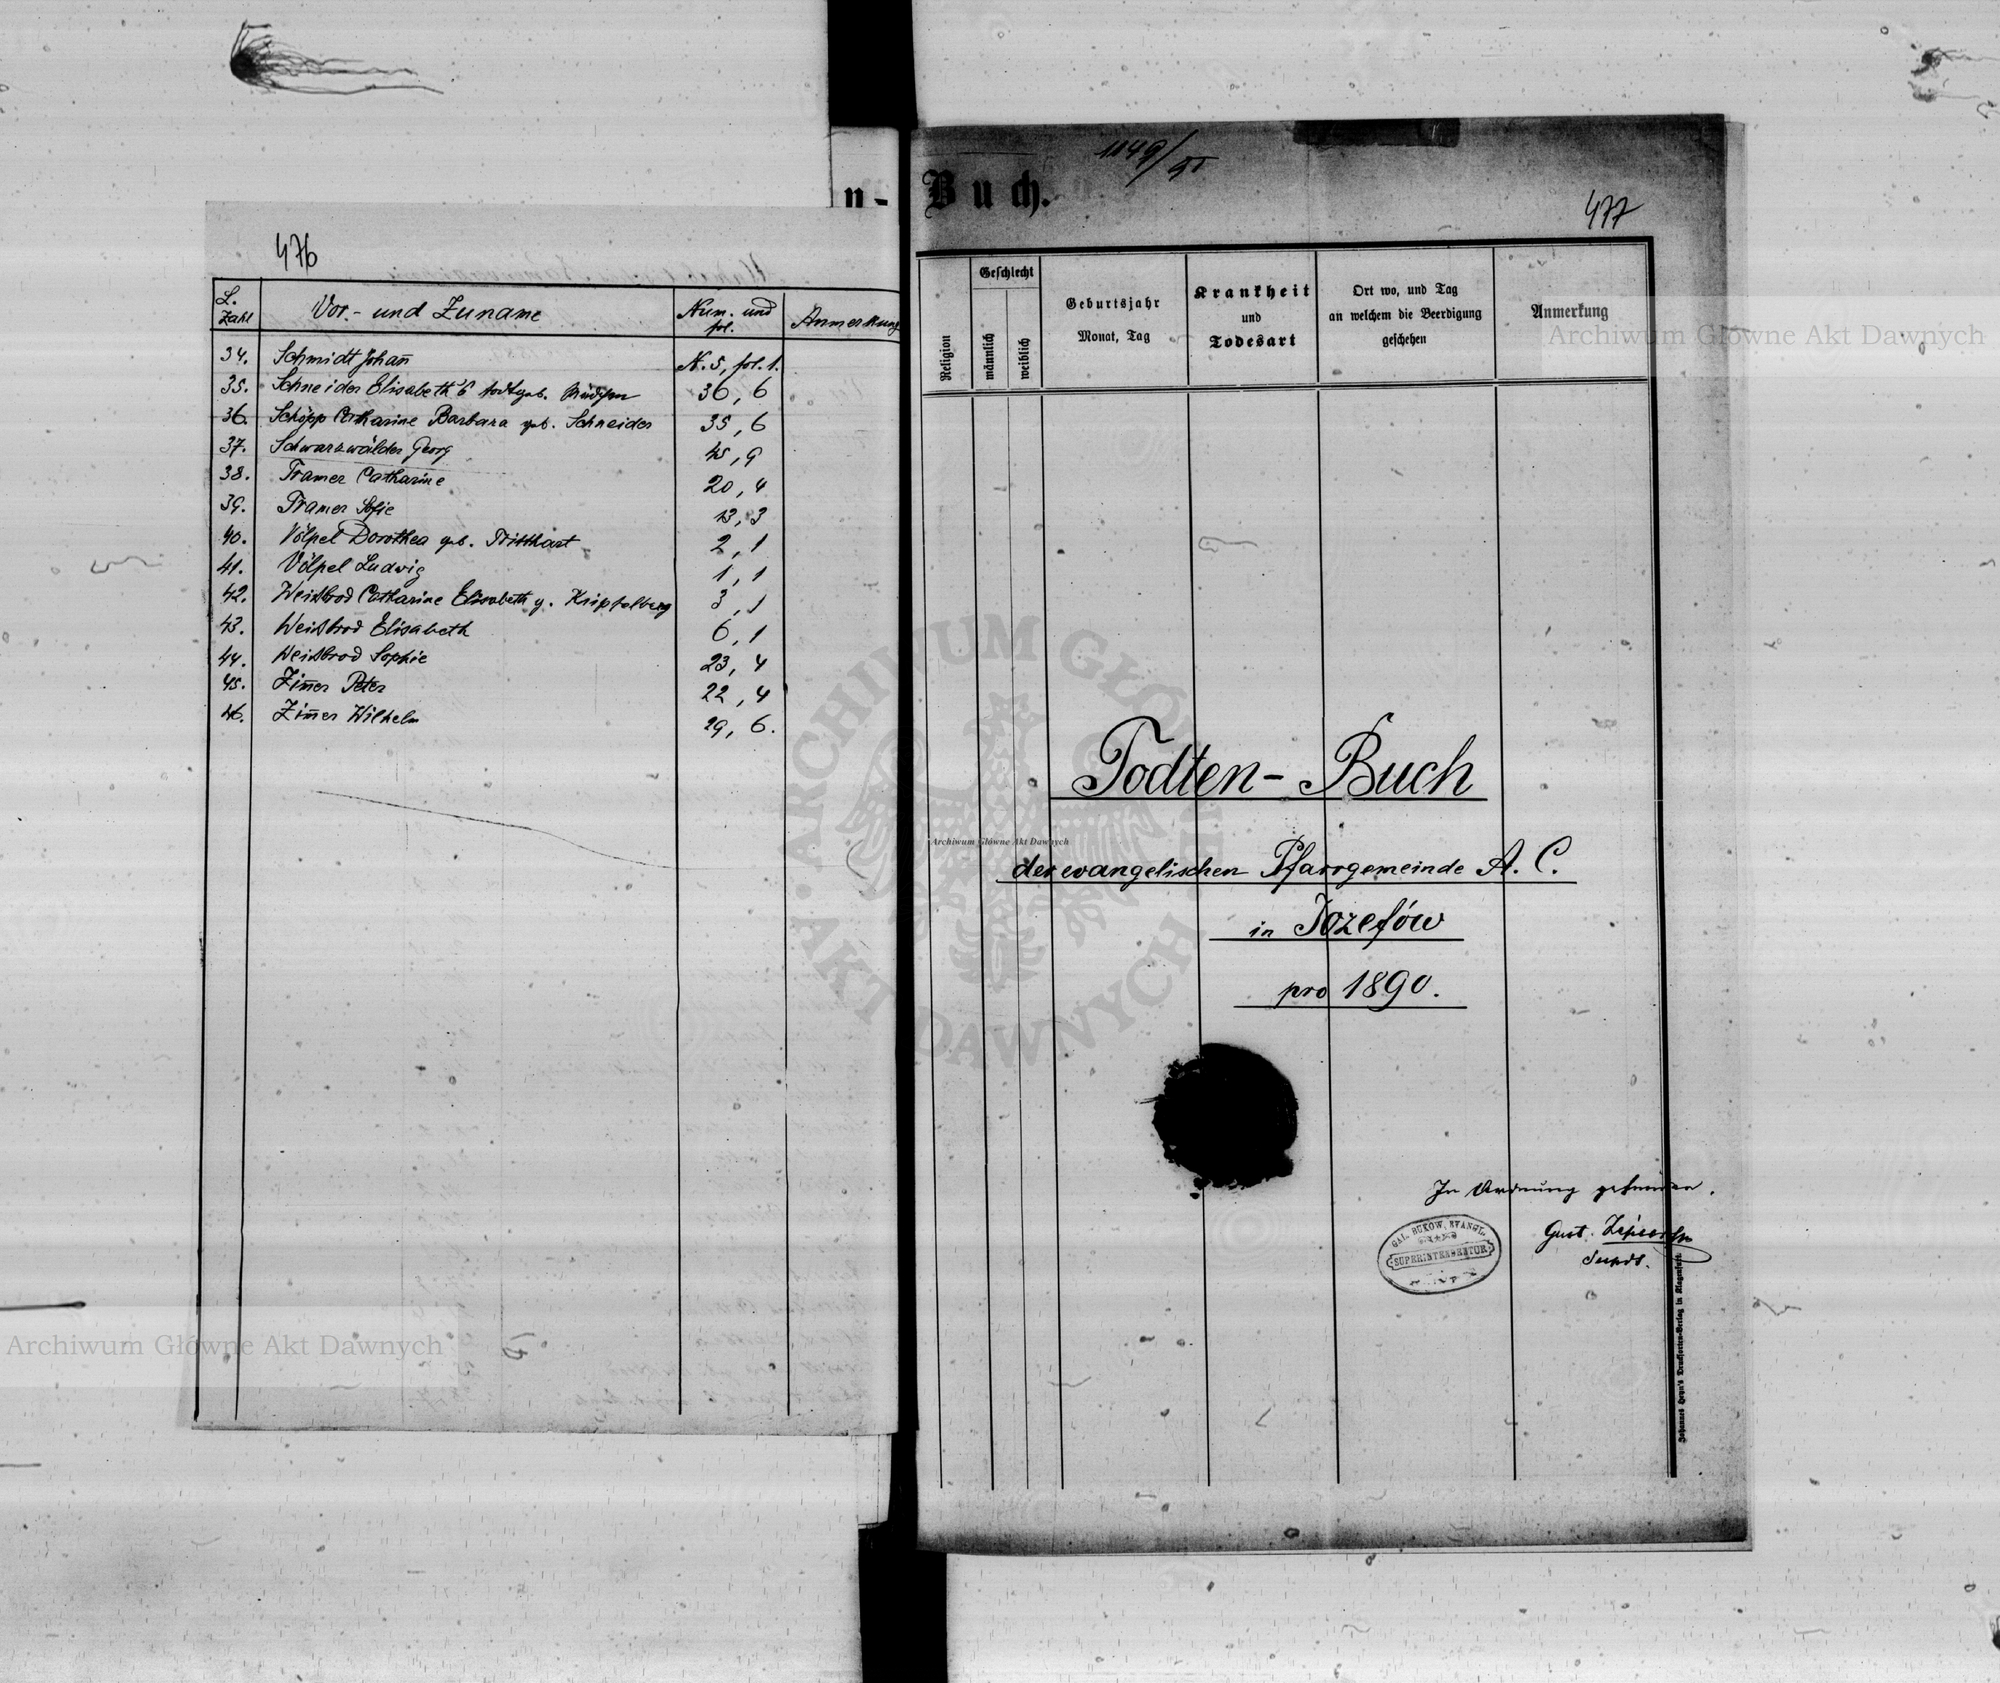 476
L. Zahl Vor- und Zuname Num. und fol. Anmerkung
34. Schmidt Johann N. 5, fol. 1.
35. Schneider Elisabeth's todtgeb. Mädchen 36, 6
36. Schöpp Catharine Barbara geb. Schneider 35, 6
37. Schwarzwälder Georg 45, 9
38. Tramer Catharine 20, 4
39. Tramer Sofie 13, 3
40. Völpel Dorothea geb. 2, 1
41. Völpel Ludwig 1, 1
42. Weißbrod Catharine Elisabeth g. Kripfelberg 3, 1
43. Weißbrod Elisabeth 6, 1
44. Weißbrod Sophie 23, 4
45. Zim̄er Peter 22, 4
46. Zim̄er Wilhelm 29, 6.
n-Buch.
1149/91
477
Religion
Geschlecht
männlich
weiblich
Geburtsjahr
Monat, Tag
Krankheit
und
Todesart
Ort wo, und Tag
an welchem die Beerdigung
geschehen
Anmerkung
Todten-Buch
der evangelischen Pfarrgemeinde A. C.
in Józefów
pro 1890.
In Ordnung gefunden.
Gust.
Supdt.
GAL. BUKOW. EVANGL.
SUPERINTENDENTUR
Johannes Heyn's Drucksorten-Verlag in Klagenfurt
Archiwum Główne Akt Dawnych
Archiwum Główne Akt Dawnych
Archiwum Główne Akt Dawnych
ARCHIWUM GŁÓWNE
AKT DAWNYCH